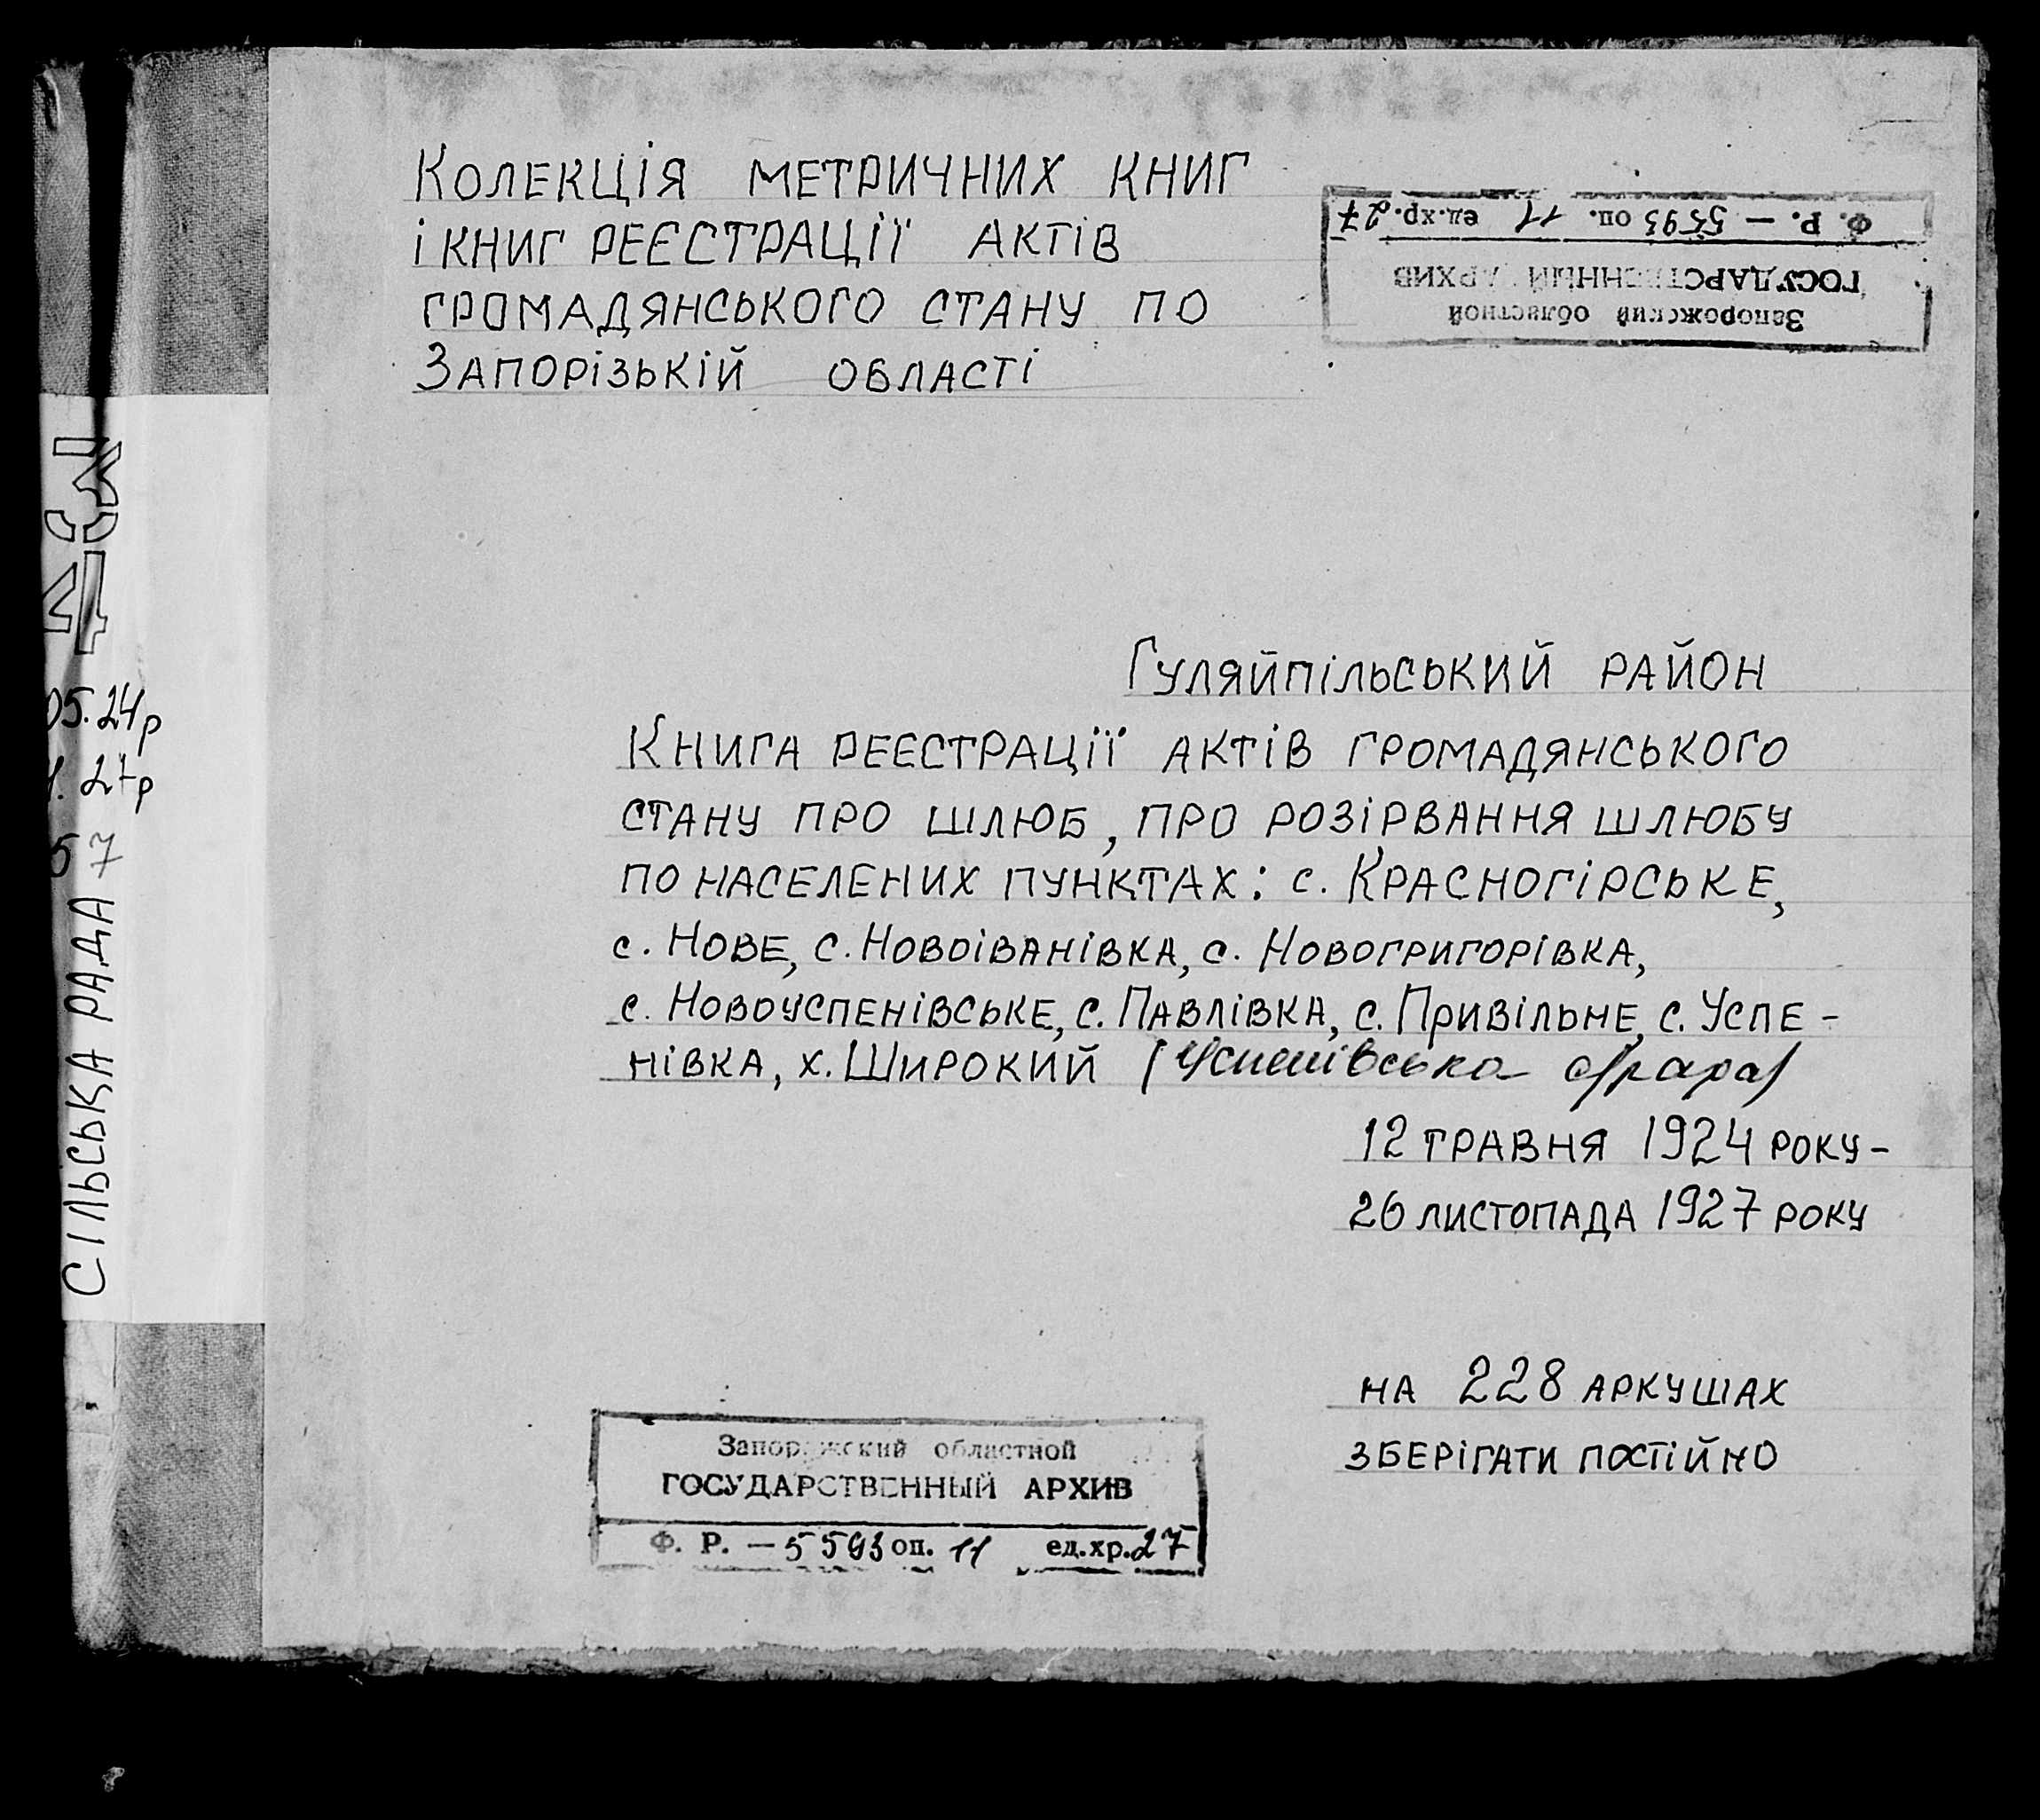 Колекція метричних книг
і книг реєстрації актів
громадянського стану по
Запорізькій області
Ф. Р. — 5593 оп. 11 ед.хр. 27
ГОСУДАРСТВЕННЫЙ АРХИВ
Запорожский областной
Гуляйпільський район
Книга реєстрації актів громадянського
стану про шлюб, про розірвання шлюбу
по населених пунктах: с. Красногірське,
с. Нове, с. Новоіванівка, с. Новогригорівка,
с. Новоуспенівське, с. Павлівка, с. Привільне, с. Успе-
нівка, х. Широкий (Успенівська с/рада)
12 травня 1924 року-
26 листопада 1927 року
на 228 аркушах
зберігати постійно
Запорожский областной
ГОСУДАРСТВЕННЫЙ АРХИВ
Ф. Р. — 5593 оп. 11 ед.хр. 27
05.24р
1. 27р
57
СІЛЬСЬКА РАДА